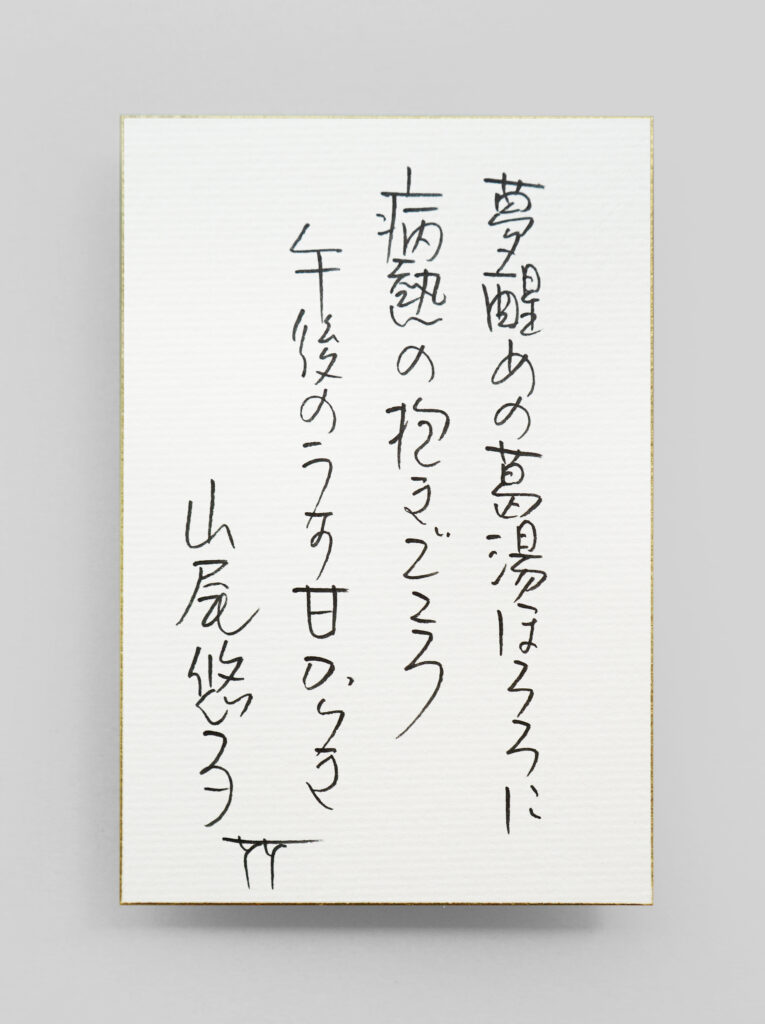 夢醒めの葛湯ほろろに
病熱の抱きごころ
午後のうす甘かりき
山尾悠子